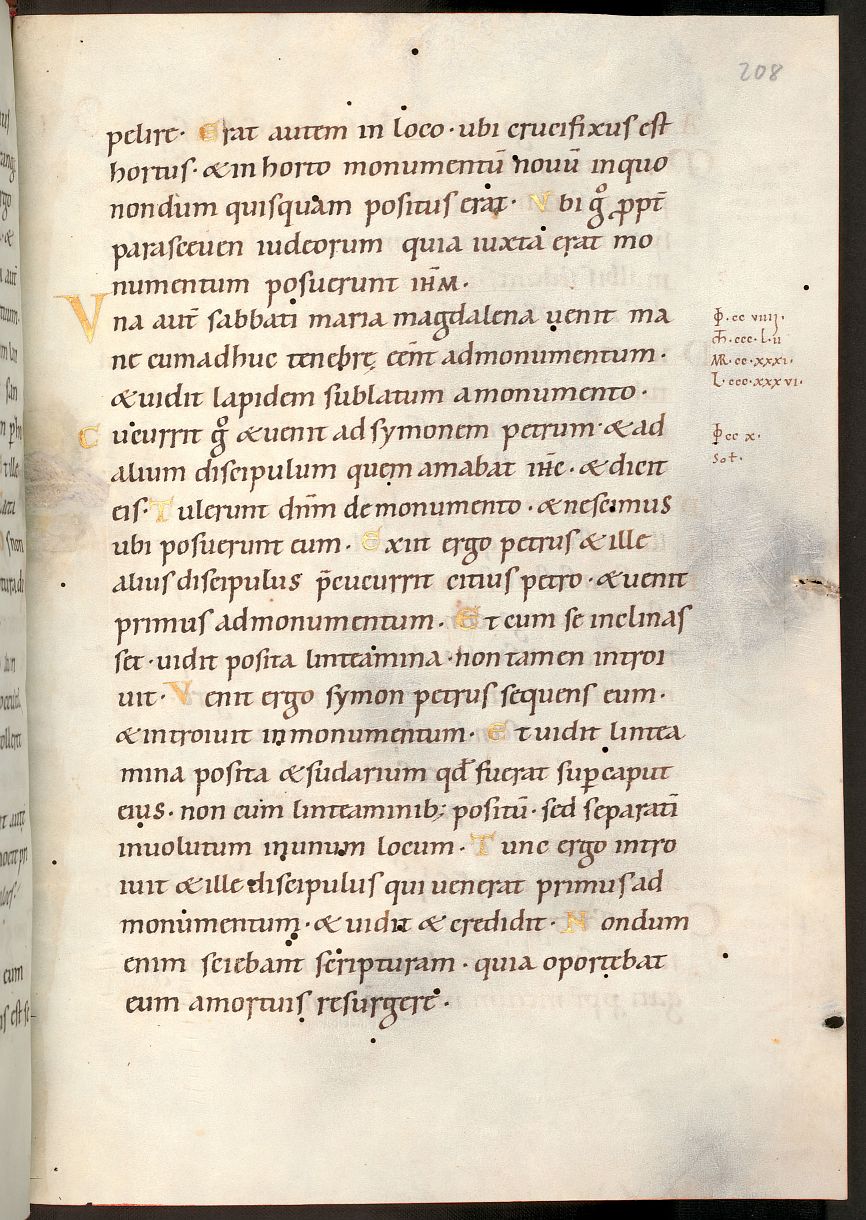 208
pelire· Erat autem in loco· ubi crucifixus est
hortus· & in horto monumentū nouū inquo
nondum quisquam positus erat· Vbi gͦ ꝓpt̄
parasceuen iudeorum quia iuxta erat mo
numentum posuerunt ihm̄.
Vna aut̄ sabbati maria magdalena uenit ma
ne cum adhuc tenebrę eent̄ admonumentum·
& uidit lapidem sublatum amonumento·
Cucurrit gͦ & uenit ad symonem petrum· & ad
alium discipulum quem amabat ihc̄· & dicit
eis· Tulerunt dnm̄ de monumento· & nescimus
ubi posuerunt eum· Exiit ergo petrus & ille
alius discipulus p̄cucurrit citius petro· & uenit
primus admonumentum· Et cum se inclinas
set· uidit posita linteamina· non tamen introi
uit· Venit ergo symon petrus sequens eum·
& introiuit inmonumentum· Et uidit lintea
mina posita & sudarium qd̄ fuerat suꝑ caput
eius· non cum linteaminib; positū· sed separatī
inuolutum inunum locum· Tunc ergo intro
iuit & ille discipulus qui uenerat primus ad
monumentum· & uidit & credidit· Nondum
enim sciebant scripturam· quia oportebat
eum amortuis resurgere·
·cc viiii·
·ccc·l·ii
MR·cc·xxxi·
L·ccc·xxxvi·
cc x·
sol·